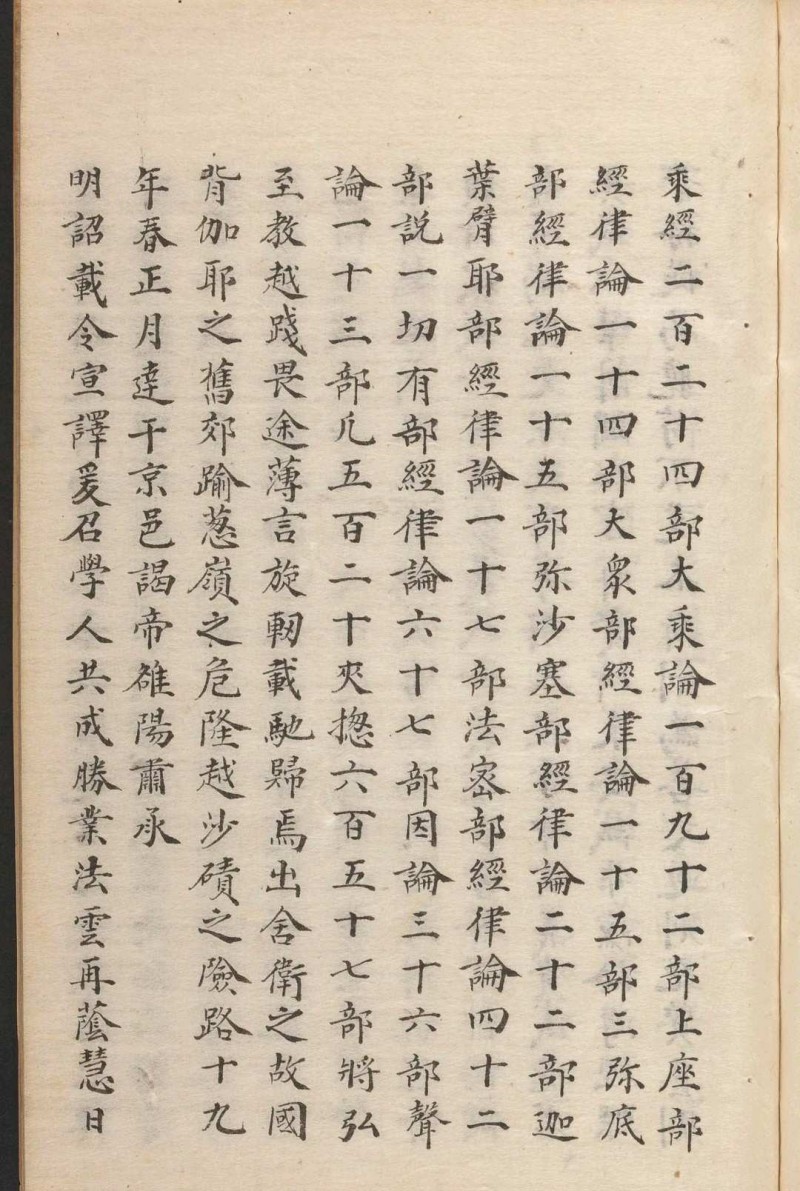 乘經二百二十四部大乘論一百九十二部上座部
經律論一十四部大衆部經律論一十五部三弥底
部經律論一十五部弥沙塞部經律論二十二部迦
葉臂耶部經律論一十七部法宻部經律論四十二
部說一切有部經律論六十七部因論三十六部聲
論一十三部凡五百二十夾揔六百五十七部將弘
至教越踐畏途薄言旋軔載馳歸焉出舍衛之故國
背伽耶之舊郊踰葱嶺之危隆越沙磧之險路十九
年春正月達于京邑謁帝雒陽肅承
明詔載令宣譯爰召學人共成勝業法雲再蔭慧日